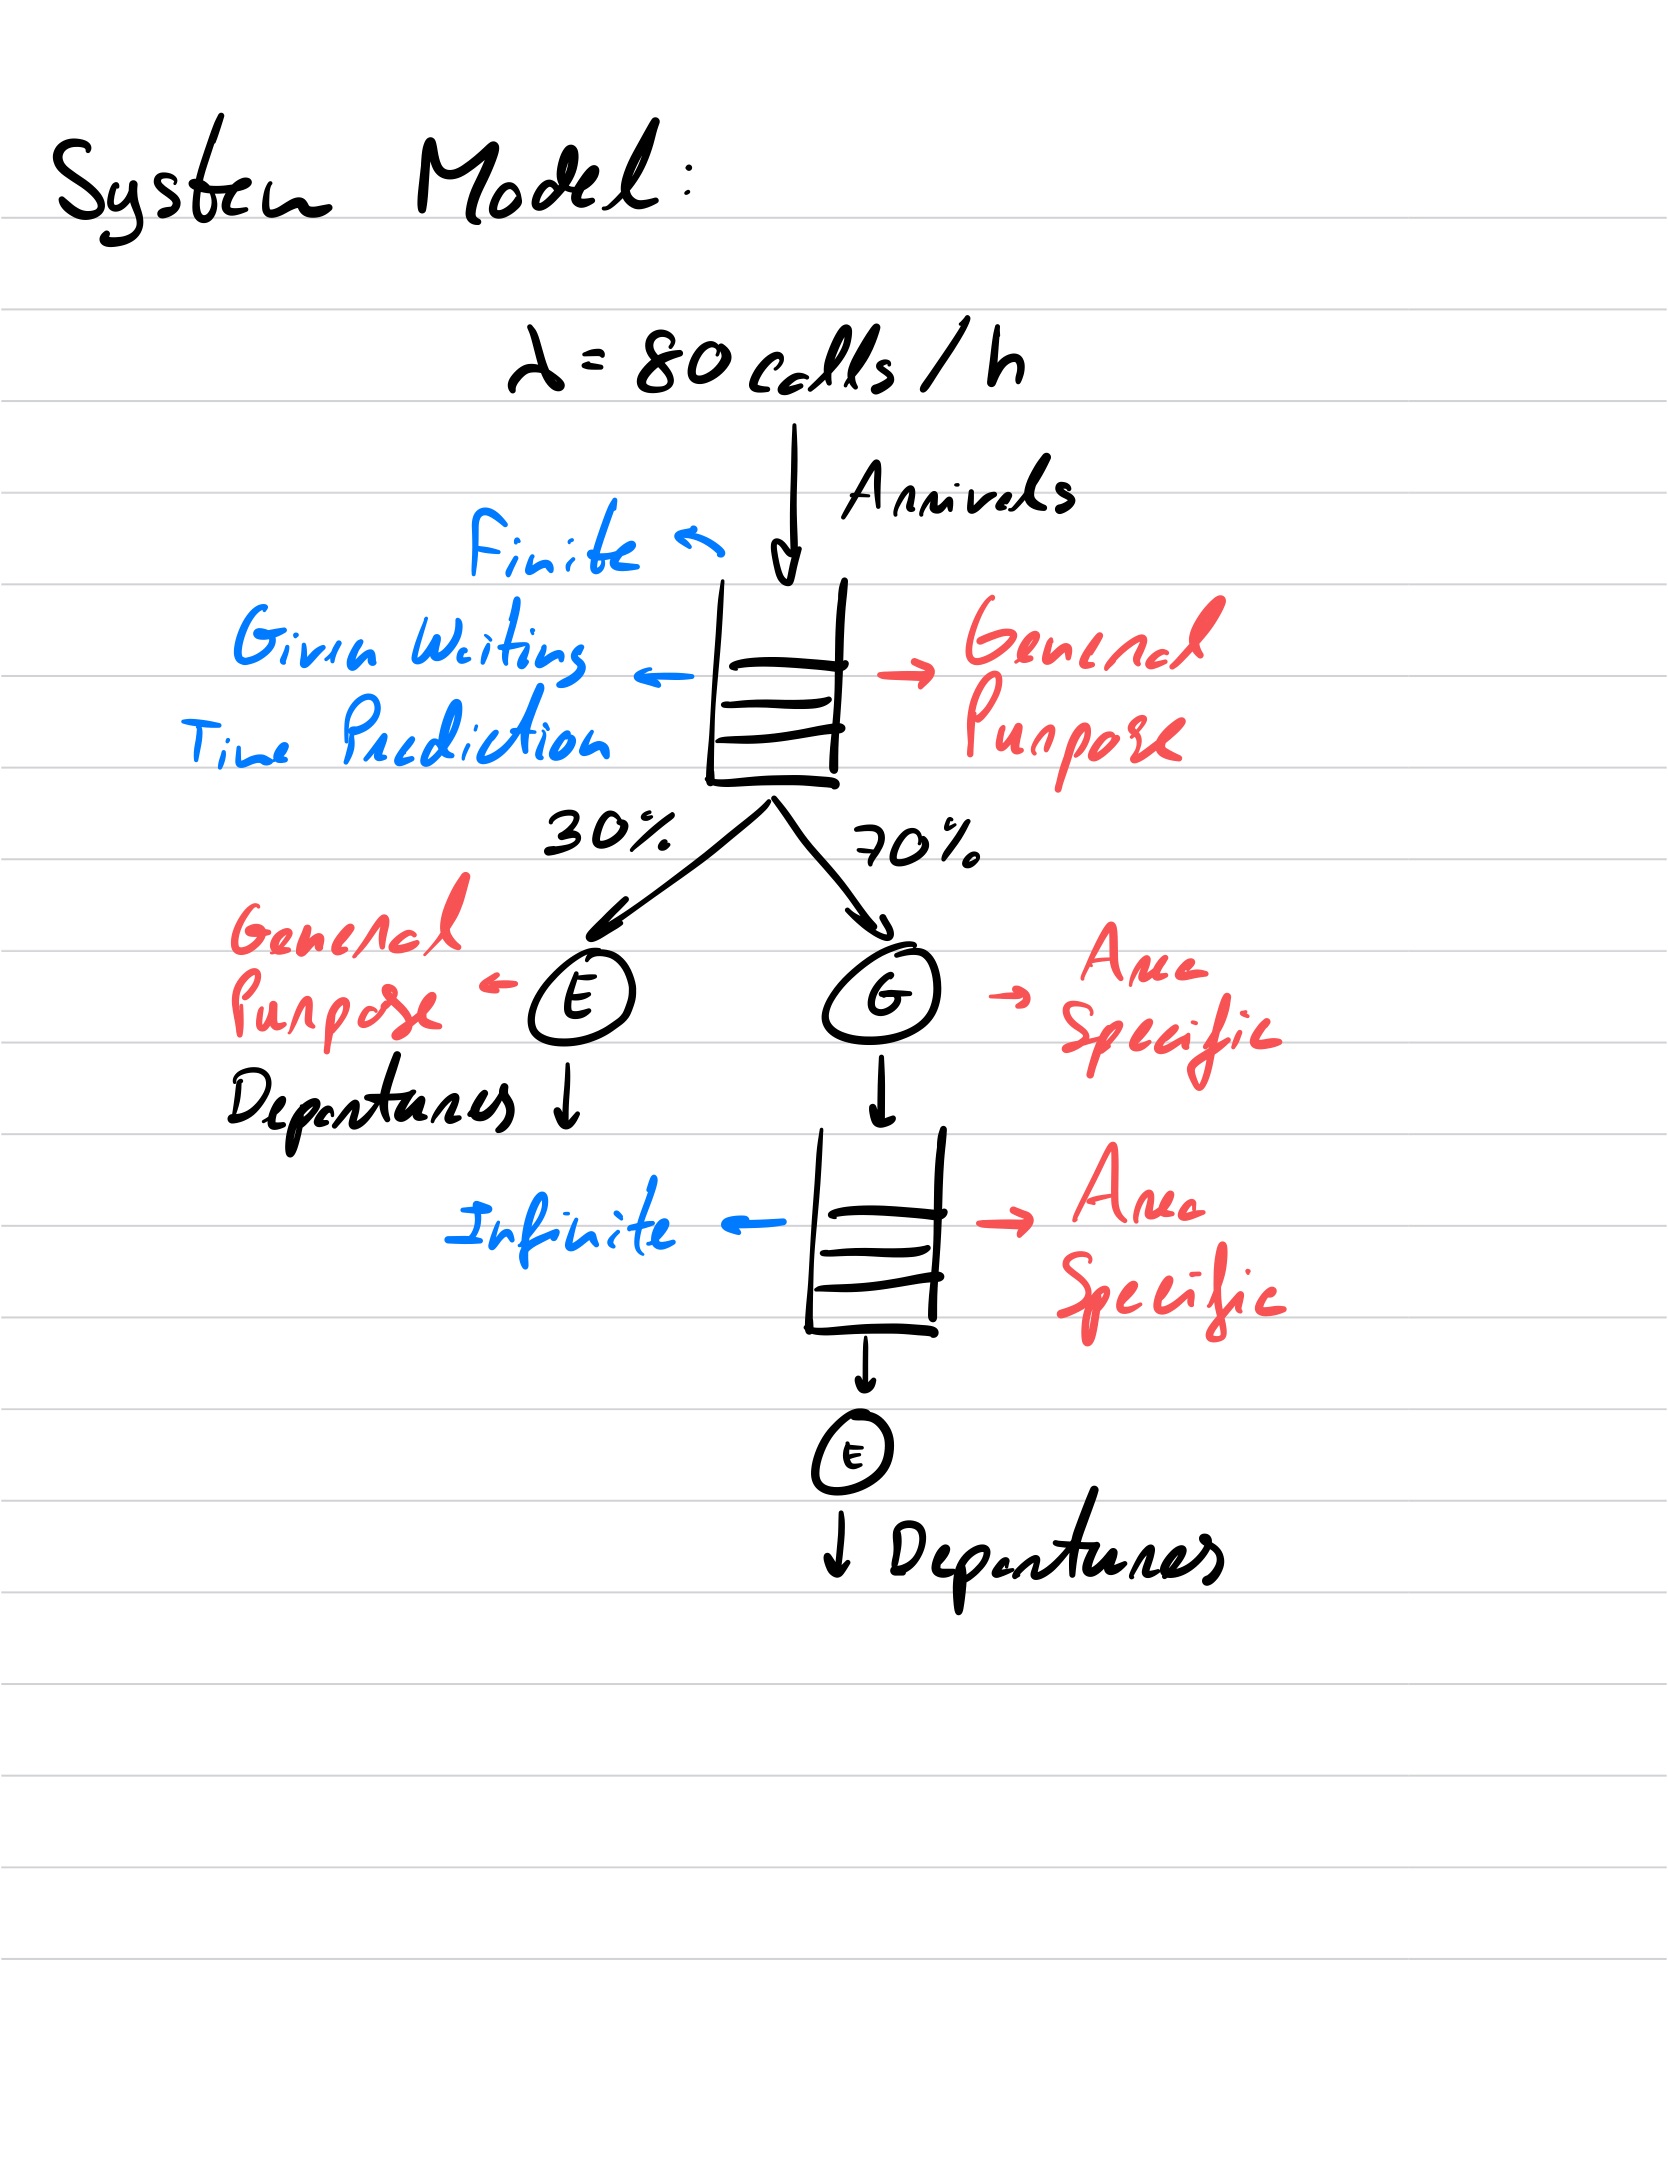 System Model:
λ = 80 calls / h
Arrivals
Finite
Given Waiting
Time Prediction
General
Purpose
30%
70%
General
Purpose
E
G
Area
Specific
Departures
Infinite
Area
Specific
E
Departures